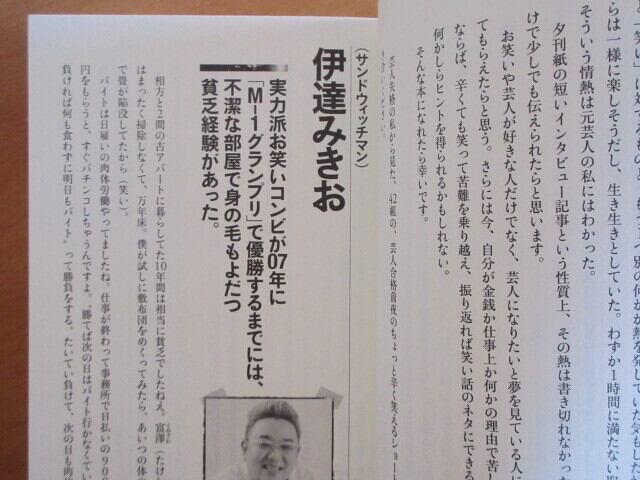 らは一様に楽しそうだし、生き生きとしていた。わずか1時間に満たない取
そういう情熱は元芸人の私にはわかった。
夕刊紙の短いインタビュー記事という性質上、その熱は書き切れなかっ
けで少しでも伝えられたらと思います。
お笑いや芸人が好きな人だけでなく、芸人になりたいと夢を見ている人に
てもらえたらと思う。さらには今、自分が金銭か仕事上か何かの理由で苦し
ならば、辛くても笑って苦難を乗り越え、振り返れば笑い話のネタにできる
何かしらヒントを得られるかもしれない。
そんな本になれたら幸いです。
芸人失格の私から見た、42組の、芸人合格前夜のちょっと辛く笑えるショート
(サンドウィッチマン)
伊達みきお
実力派お笑いコンビが07年に
「M-1グランプリ」で優勝するまでには、
不潔な部屋で身の毛もよだつ
貧乏経験があった。
相方と2間の古アパートに暮らしてた10年間は相当に貧乏でしたねえ。富澤(たけ
はまったく掃除しなくて、万年床。僕が試しに敷布団をめくってみたら、あいつの体の
で畳が陥没してたから(笑い)。
バイトは日雇いの肉体労働やってましたね。仕事が終わって事務所で日払いの900
円をもらうと、すぐパチンコしちゃうんですよ。“勝てば次の日はバイト行かなくてい
負ければ何も食わずに明日もバイト”って勝負をする。たいてい負けて、次の日も肉体